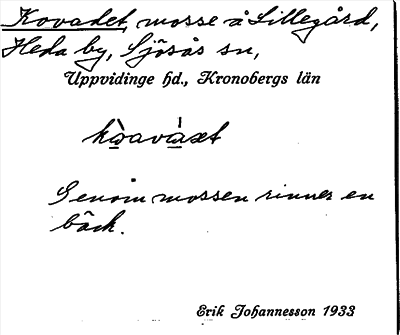 Kovadet, mosse å Lillegård,
Heda by, Sjösås sn,
Uppvidinge hd., Kronobergs län
Genom mossen rinner en
bäck.
Erik Johannesson 1933